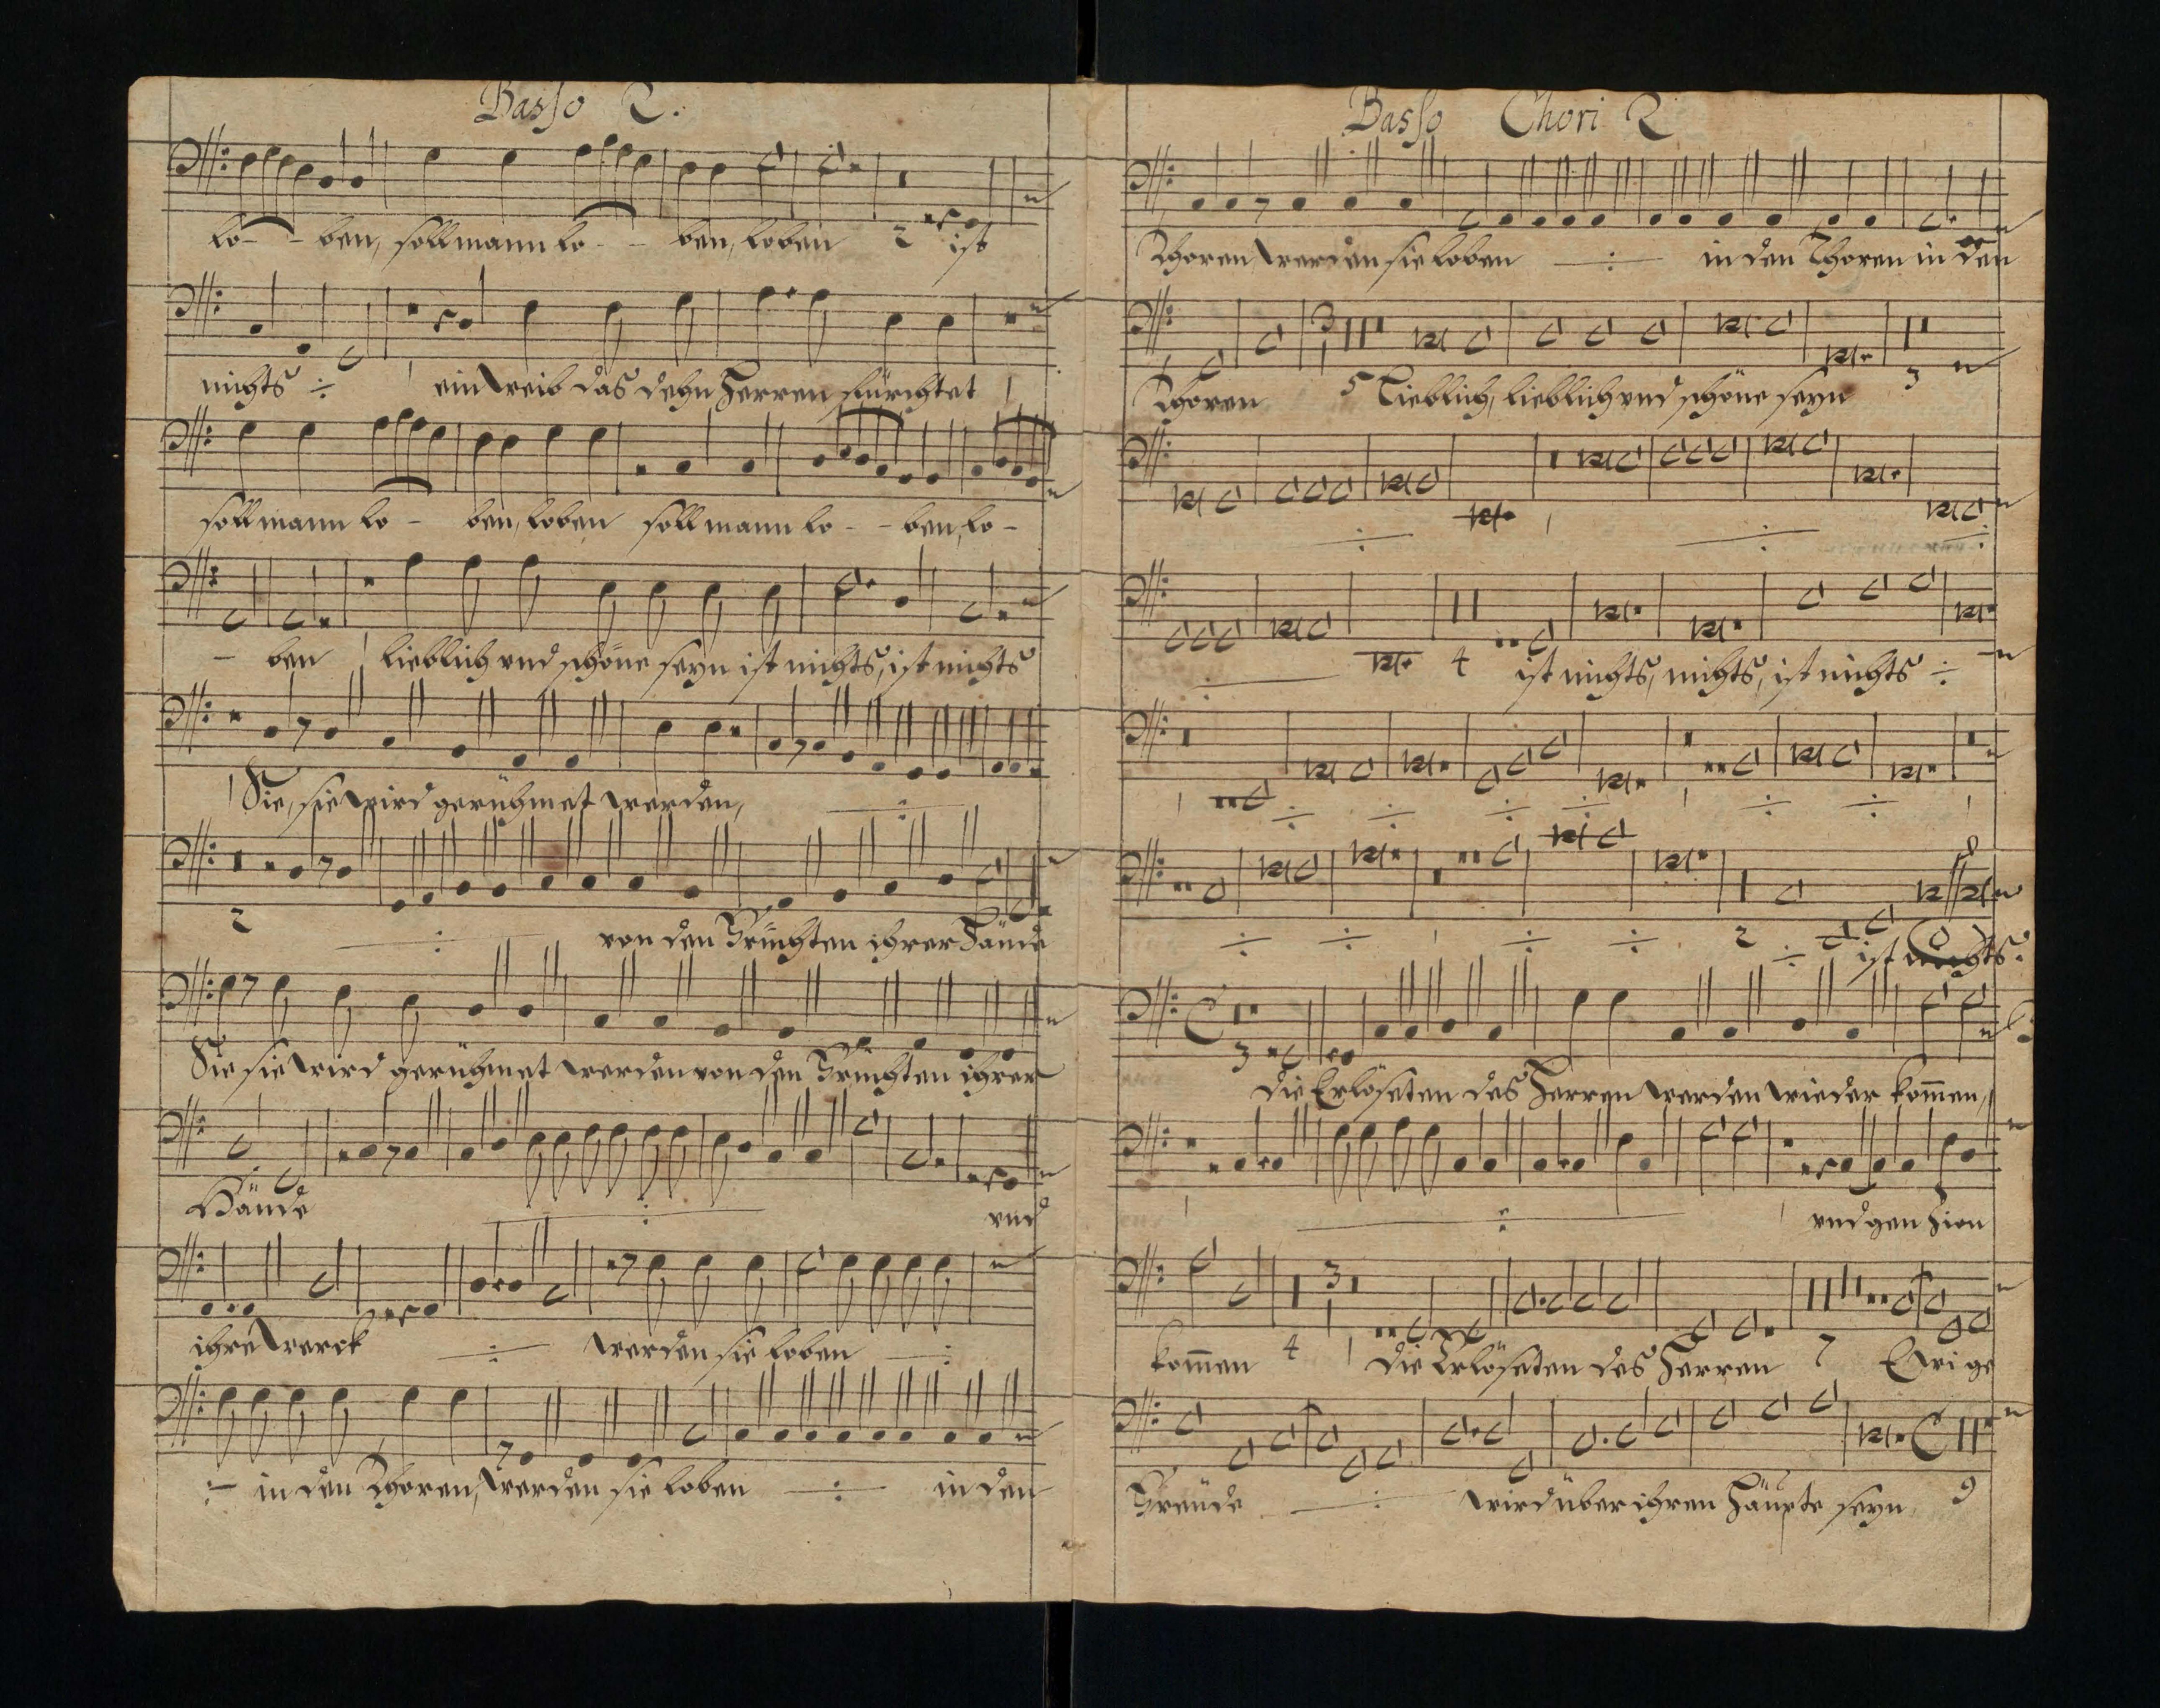 Basso 2.
lo - - ben, soll mann lo - - ben, loben 2 ist
nichts ÷ 1 ein Weib das dehn Herren fürchtet 1
soll mann lo - ben, loben soll mann lo - - ben, lo -
- ben 1 lieblich vnd schöne seyn ist nichts, ist nichts
1 Sie, sie wird gerühmet werden, ÷
2 ÷ von den Früchten ihrer Hände
Sie sie wird gerühmet werden von den Früchten ihrer
Hände ÷ vnd
ihre Werck ÷ werden sie loben ÷
÷ in den Thoren, werden sie loben ÷ in den
Basso Chori 2
Thoren werden sie loben ÷ in den Thoren in den
Thoren 5 Lieblich, lieblich vnd schöne seyn 3
÷ 1 ÷ ÷
÷ 4 ist nichts, nichts, ist nichts ÷
1 ÷ ÷ ÷ ÷ 1 ÷ ÷ 1
÷ ÷ 1 ÷ ÷ 2 ÷ ist nichts
3 die Erlöseten des Herren werden wieder kom̄en,
1 ÷ 1 vnd gen Zion
kom̄en 4 1 die Erlöseten des Herren 7 Ewige
Freüde ÷ wird über ihren Häupte seyn 9